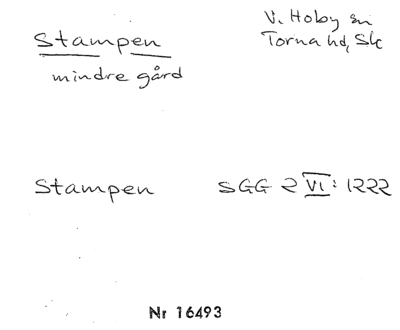 Stampen
V. Hoby sn
Torna hd, Sk
mindre gård
Stampen SGG 2 VI: 1222
Nr 16493